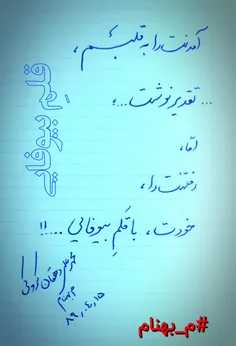 آمدنت را به قلبم،
... تقدیر نوشت ...؛
امّا،
رفتنت را،
خودت، با قلمِ بیوفایی ....!!
قلمِ بیوفایی
م بهنام
۸۹.۰۴.۱۵
#م_بهنام